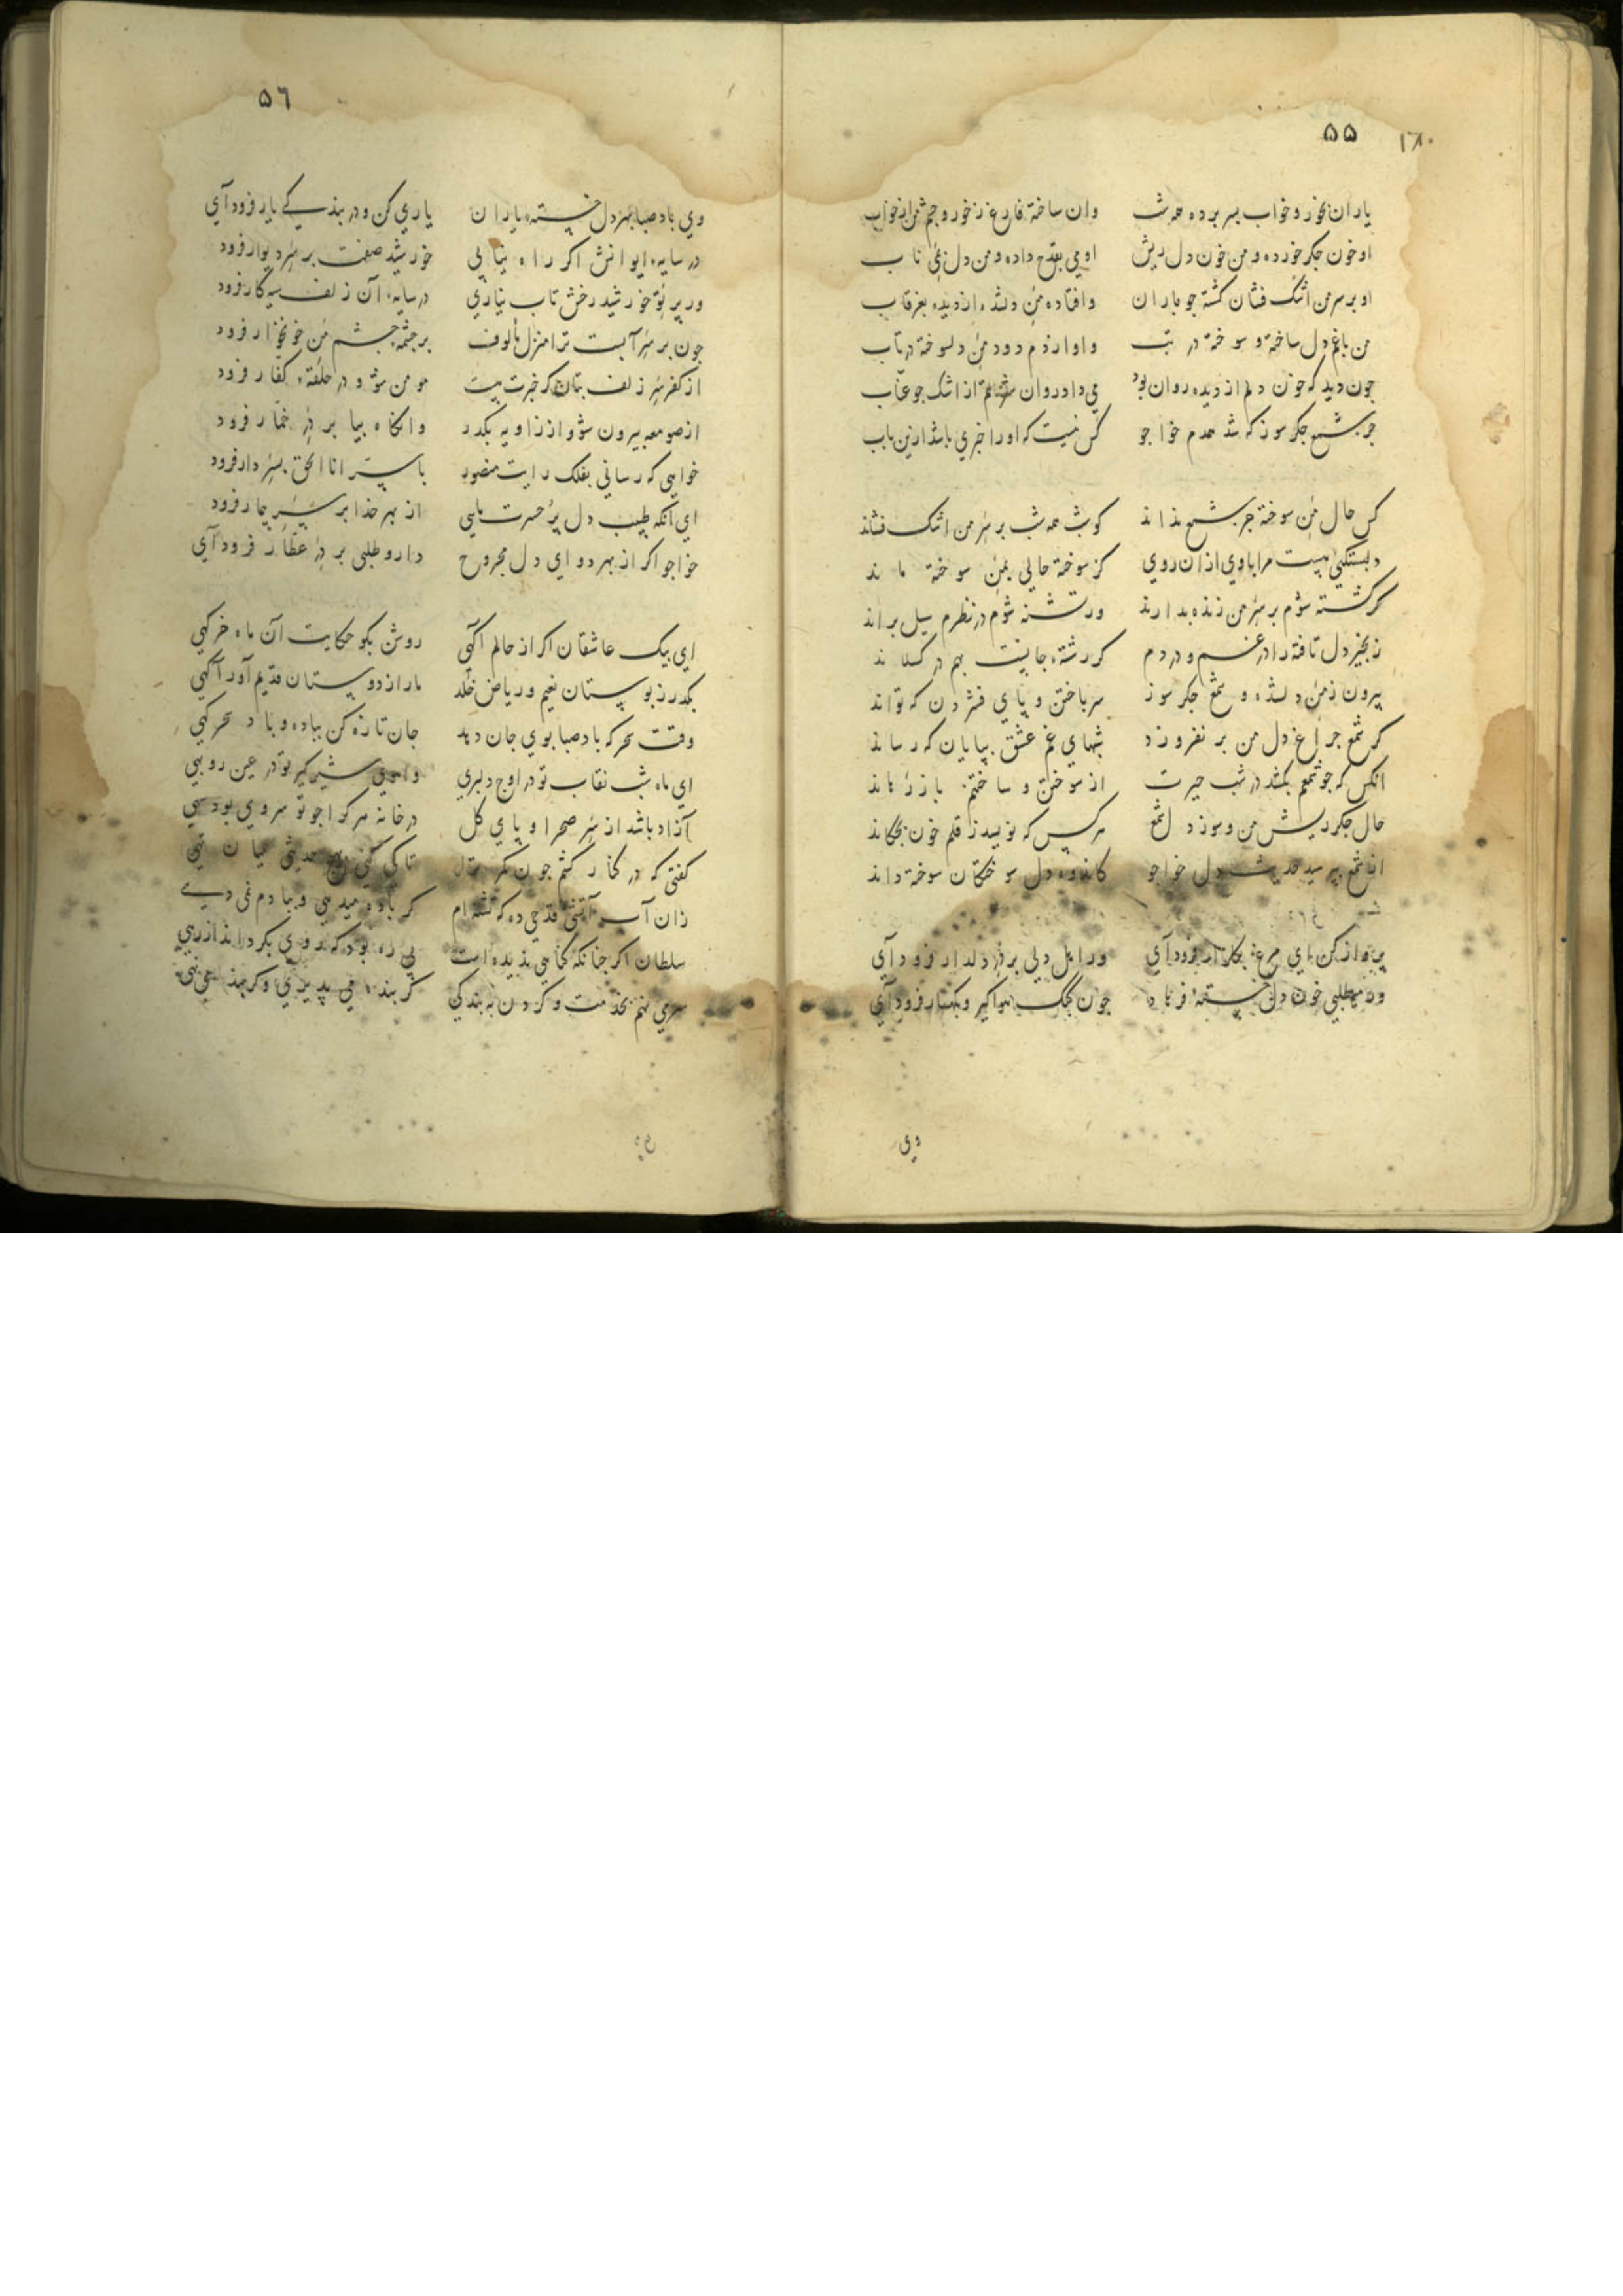 ۵۵ ۱۸۰
یاران بخور و خواب بسر برده همه شب وان ساخته فارغ ز خور و چشم من از خواب
او خون جکر خورده و من خون دل ریش او می بقدح داده و من دل بمی ناب
او بر سر من اشک فشان کشته جو باران وافتاده من دلشده از دیده بغرقاب
من با غم دل ساخته و سوخته در تب و او از دم دود من دلسوخته در تاب
جون دید که خون دلم از دیده روان بود می داد روان از اشک جو عناب
جز شمع جکر سوز که شد همدم خواجو کس نیست که او را خبری باشد ازین باب
کس حال من سوخته جز شمع نداند کو شب همه شب بر سر من اشک فشاند
دلبستکیی هست مرا با وی از آن روی کز سوخته حالی بمن سوخته ماند
کر کشته شوم بر سر من زنده بدارد ور تشنه شوم در نظرم سیل براند
زنجیر دل تافته را در غم و دردم کر رشتهٔ جانیست بهم در کسلاند
بیرون ز من دلشده و شمع جکر سوز سر باختن و پای فشردن که تواند
کر شمع جراغ دل من بر نفروزد شبهای غم عشق بپایان که رساند
انکس که جو شمعم بکشد در شب حیرت از سوختن و ساختنم باز رهاند
حال جکر ریش من و سوز دل شمع هر کس که نویسد ز قلم خون بچکاند
از شمع بپرسید حدیث دل خواجو کاندوه دل سوختکان سوخته داند
پرواز کن ای مرغ بکلزار فرود آی ور اهل دلی بر در دلدار فرود آی
ور می طلبی خون دل خستهٔ فرهاد جون کبک هوا کیر و بکهسار فرود آی
وی
۵٦
وی باد صبا بهر دل خستهٔ یاران یاری کن و در بندکی یار فرود آی
در سایهٔ ایوانش اکر راه نیابی خورشید صفت بر سر دیوار فرود
ور پرتو خورشید رخش تاب نیاری در سایهٔ آن زلف سیه کار فرود
جون بر سر آبست ترا منزل مألوف بر چشمه چشم من خونخوار فرود
از کفر سر زلف بتان کر خبرت نیست مومن شو و در حلقهٔ کفار فرود
از صومعه بیرون شو و از زاویه بکذر وانکاه بیا بر در خمار فرود
خواهی که رسانی بفلک رایت منصور با سر انا الحق بسر دار فرود
ای آنکه طبیب دل پر حسرت مایی از بهر خدا بر سر بیمار فرود
خواجو اکر از بهر دوای دل مجروح دارو طلبی بر در عطار فرود آی
ای پیک عاشقان اکر از حالم آکهی روشن بکو حکایت آن ماه خرکهی
بکذر ز بوستان نعیم و ریاض خلد ما را ز دوستان قدیم آور آکهی
وقت سحر که باد صبا بوی جان دهد جان تازه کن بباده و باد سحرکهی
ای ماه شب نقاب تو در اوج دلبری وآهوی شیر کیر تو در عین روبهی
آزاد باشد از سر صحرا و پای کل در خانه هر کرا جو تو سروی بود سهی
کفتی که در کنار کشم جون تا کی کنی حدیثی میان تهی
زان آب آتشی قدحی ده که تشنه ام کر باده میدهی و ببادم نمی دهی
سلطان اکر جنانکه کناهی بدیده است پی ره بود که روی بکرداند از رهی
سر می نهم بخدمت و کردن به بندکی کر بنده می پذیری وکر بند می نهی